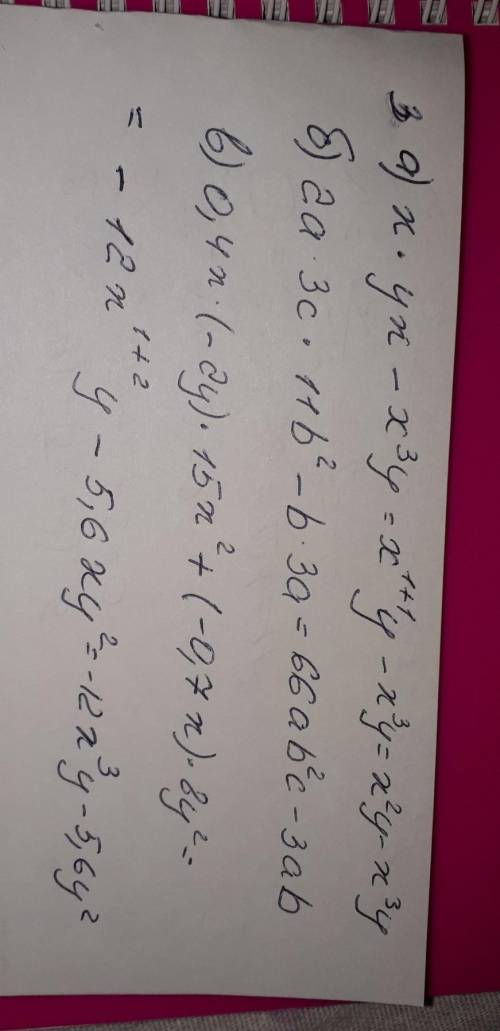 3. а) x · yx - x³y = x¹⁺¹y - x³y = x²y - x³y
б) 2a · 3c · 11b² - b · 3a = 66ab²c - 3ab
в) 0,4x · (-2y) · 15x² + (-0,7x) · 8y² =
= - 12x¹⁺²y - 5,6xy² = -12x³y - 5,6y²